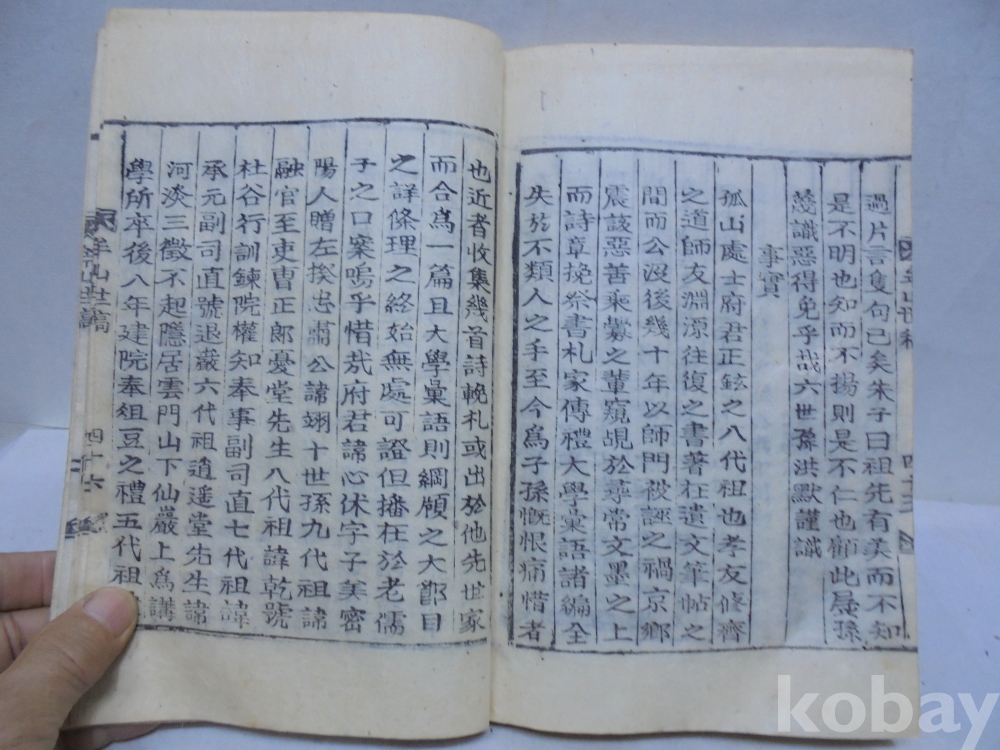 過片言隻句已矣朱子曰祖先有美而不知
是不明也知而不揚則是不仁也顧此孱孫
蔑識惡得免乎哉六世孫洪默謹識
事實
孤山處士府君正鉉之八代祖也孝友修齊
之道師友淵源往復之書著在遺文筆帖之
間而公沒後幾十年以師門被誣之禍京鄉
震該惡善乘釁之輩窺覘於尋常文墨之上
而詩章挽祭書札家傳禮大學彙語諸編全
失於不類人之手至今爲子孫慨恨痛惜者
也近者收集幾首詩輓札或出於他先世家
而合爲一篇且大學彙語則綱領之大節目
之詳條理之終始無處可證但播在於老儒
子之口案嗚乎惜哉府君諱心休字子美密
陽人贈左揆忠肅公諱翊十世孫九代祖諱
融官至吏曺正郞憂堂先生八代祖諱乾號
杜谷行訓鍊院權知奉事副司直七代祖諱
承元副司直號退巖六代祖逍遥堂先生諱
河淡三徵不起隱居雲門山下仙巖上爲講
學所卒後八年建院奉俎豆之禮五代祖
世稿
四十六
kobay